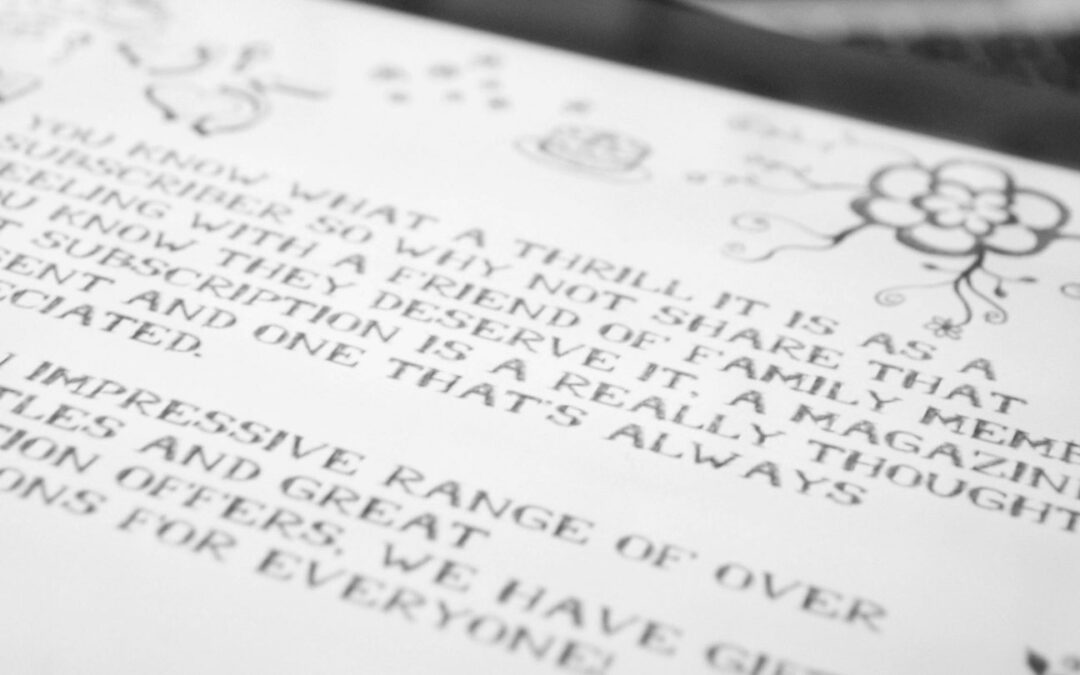 YOU KNOW WHAT A THRILL IT IS AS A
SUBSCRIBER SO WHY NOT SHARE THAT
EELING WITH A FRIEND OF FAMILY MEMB
OU KNOW THEY DESERVE IT. A MAGAZINE
T SUBSCRIPTION IS A REALLY THOUGHT
SENT AND ONE THAT'S ALWAYS
ECIATED.
IMPRESSIVE RANGE OF OVER
TLES AND GREAT
TION OFFERS, WE HAVE GIFT
ONS FOR EVERYONE!